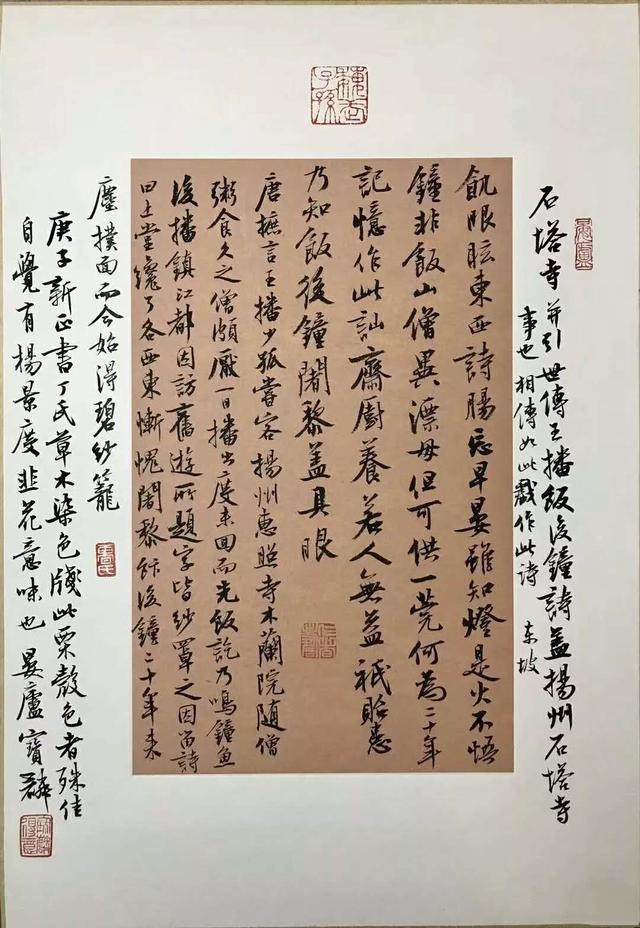 石塔寺 并引 世傳王播飯後鐘詩盖揚州石塔寺
事也 相傳如此戲作此詩 东坡
飢眼眩東西詩腸忘早晏雖知燈是火不悟
鐘非飯山僧異漂母但可供一莞何為二十年
記憶作此訕齋廚養若人無益祇貽患
乃知飯後鐘闍黎盖具眼
唐摭言王播少孤嘗客揚州惠照寺木蘭院随僧
粥食久之僧頗厭一日播出度未回而先飯訖乃鳴鐘魚
後播鎮江都因訪舊遊所題字皆紗罩之因留詩
曰上堂纔了各西東慚愧闍黎飰後鐘二十年来
塵撲面而今始得碧紗籠
庚子新正書丁氏草木染色牋此栗殼色者殊佳
自覺有楊景度韭花意味也 晏廬寶麟